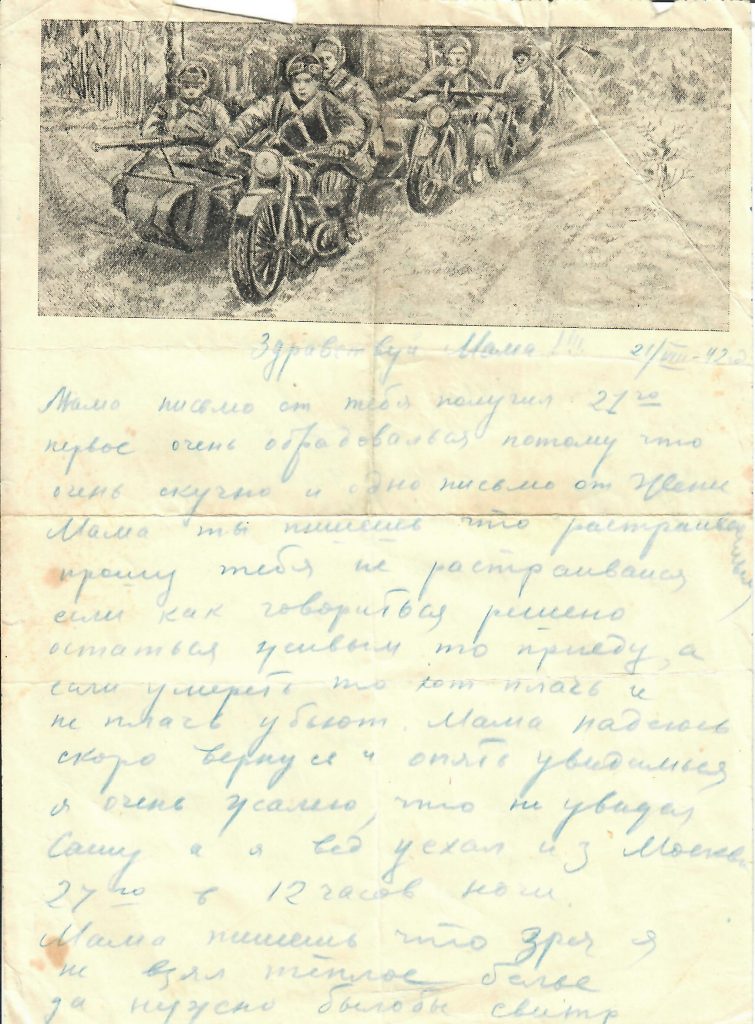 Здравствуй Мама!!! 21/VIII-42 г
Мама письмо от тебя получил 21го
первое очень обрадовалься потому что
очень скучно и одно письмо от Жени
Мама ты пишешь что растраиваешься,
прошу тебя не растраивайся
если как говориться решено
остаться живым то приеду, а
если умереть то хот плачь и
не плачь убьют. Мама надеюсь
скоро вернусе и опять увидимься,
я очень жалею, что не увидал
Сашу а я вед уехал из Москвы
27го в 12 часов ночи.
Мама пишешь что зря я
не взял тёплое белье
да нужно былобы свитр